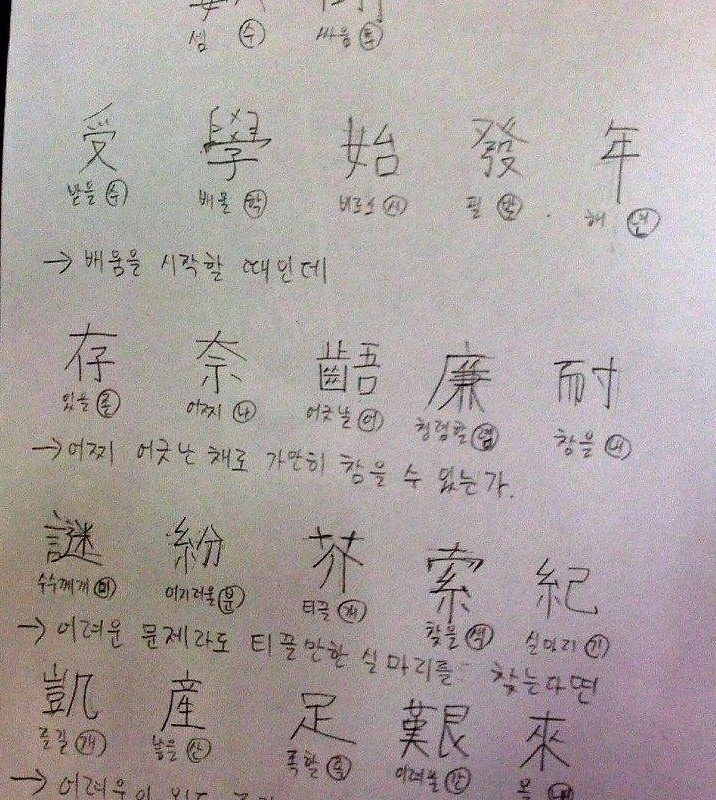 셈 수 싸움 투
受 學 始 發 年
받을 수 배울 학 비로소 시 필 발 . 해 년
→ 배움을 시작할 때인데
存 奈 齬 廉 耐
있을 존 어찌 나 어긋날 어 청렴할 렴 참을 내
→ 어찌 어긋난 채로 가만히 참을 수 있는가.
謎 紛 芥 索 紀
수수께끼 미 어지러울 분 티끌 개 찾을 색 실마리 기
→ 어려운 문제라도 티끌만한 실마리를 찾는다면
凱 産 足 艱 來
즐길 개 낳을 산 족할 족 어려울 간 올 래
→ 어려움의